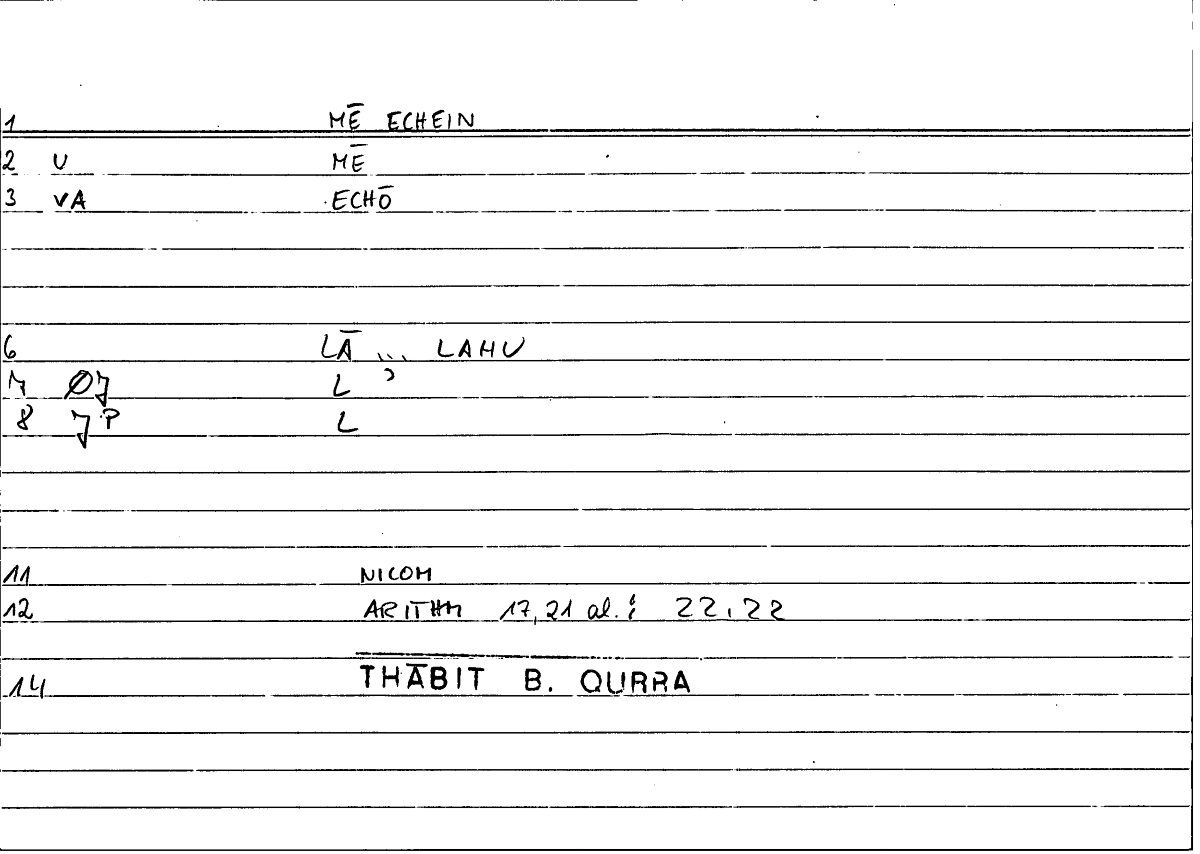 1 MĒ ECHEIN
2 U MĒ
3 VA ECHŌ
6 LĀ ... LAHU
7 L
8 L
11 NICOM
12 ARITHM 17,21 al.: 22,22
14 THĀBIT B. QURRA